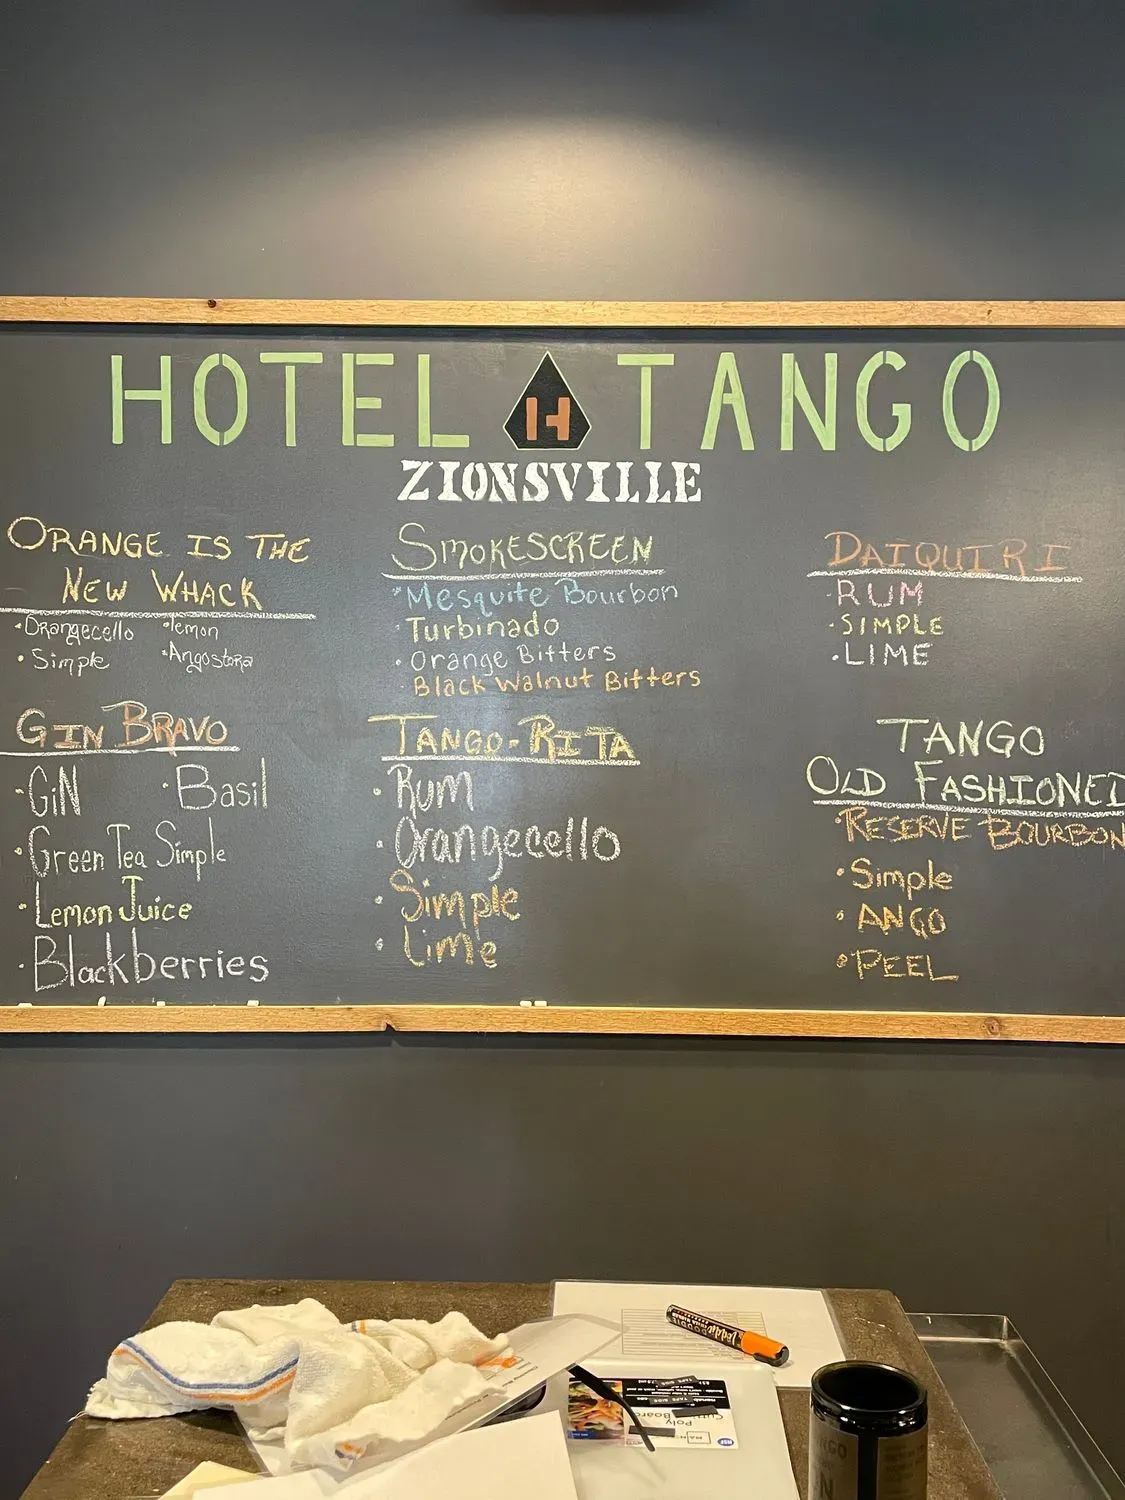 HOTEL H TANGO
ZIONSVILLE
ORANGE IS THE
NEW WHACK
·Orangecello ·lemon
·Simple ·Angostora
GIN BRAVO
·GiN ·Basil
·Green Tea Simple
·Lemon Juice
·Blackberries
SMOKESCREEN
·Mesquite Bourbon
·Turbinado
·Orange Bitters
·Black Walnut Bitters
TANGO-RITA
·Rum
·Orangecello
·Simple
·Lime
DAIQUIRI
·RUM
·SIMPLE
·LIME
TANGO
OLD FASHIONED
·RESERVE BOURBON
·Simple
·ANGO
·PEEL
Poly
Board